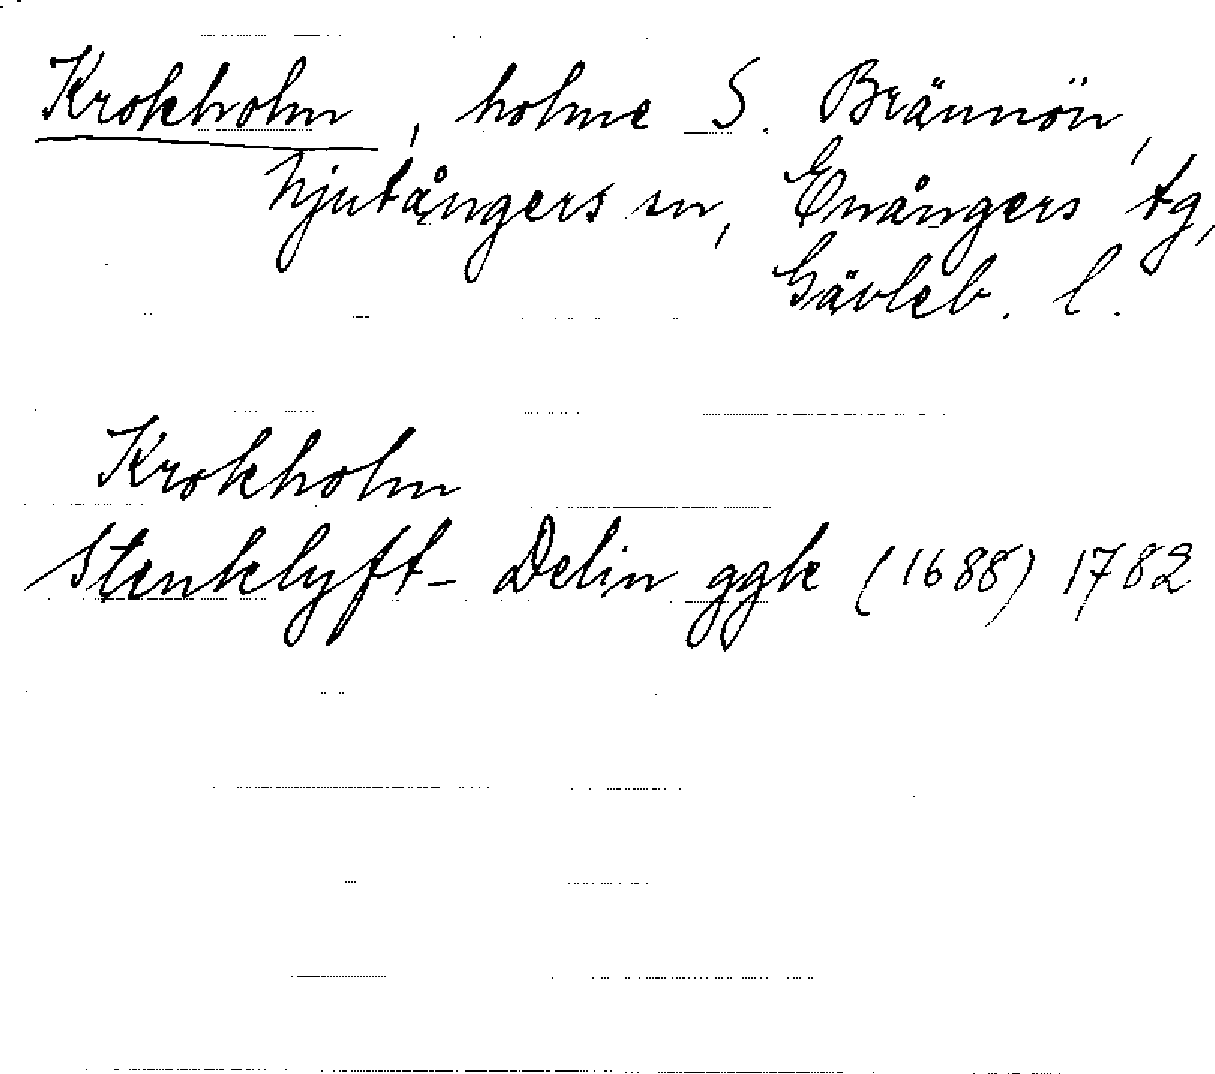 Krokholm, holme S. Brännön,
Njutångers sn, Enångers tg,
Gävleb. l.
Krokholm
Stenklyft- Delin ggk (1688) 1782